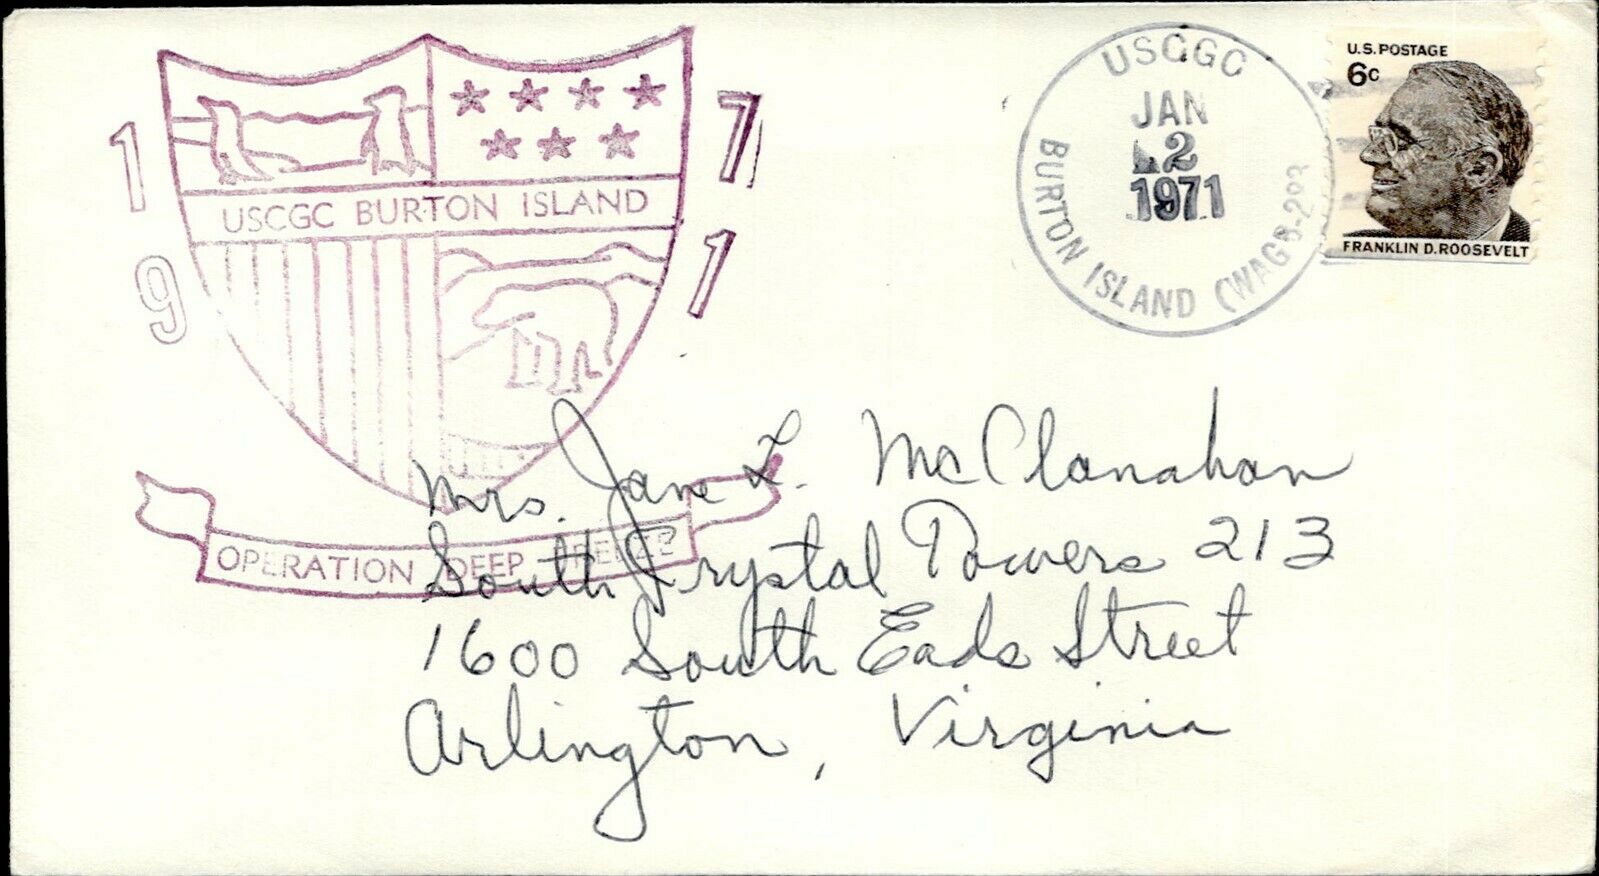 1971
USCGC BURTON ISLAND
OPERATION DEEP FREEZE
USCGC
JAN
2
1971
BURTON ISLAND (WAGB-283
U.S. POSTAGE
6c
FRANKLIN D. ROOSEVELT
Mrs. Jane L. McClanahan
South Crystal Towers 213
1600 South Eads Street
Arlington, Virginia